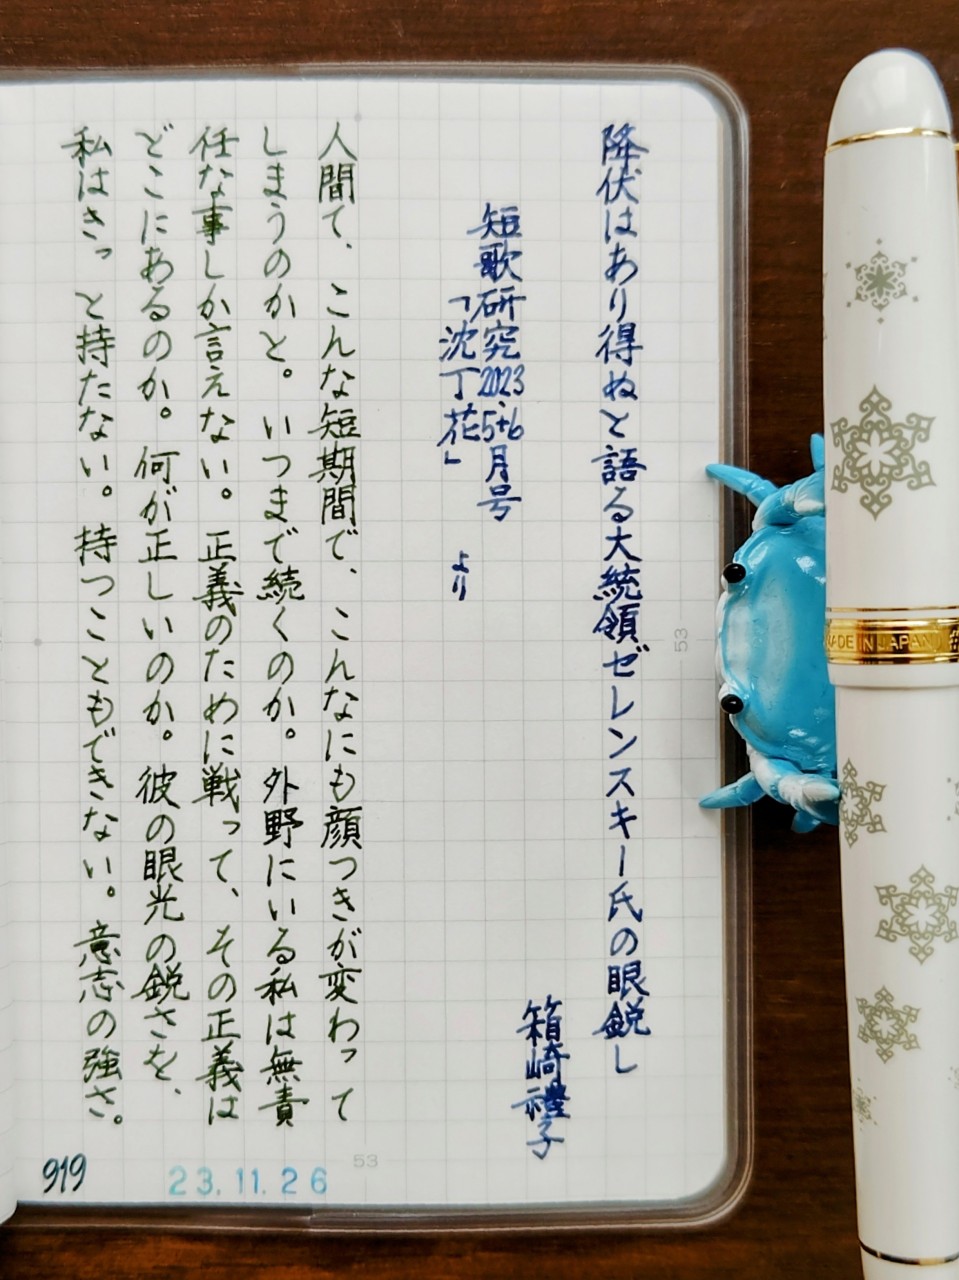 降伏はあり得ぬと語る大統領ゼレンスキー氏の眼鋭し
箱崎禮子
短歌研究2023.5+6月号
「沈丁花」より
人間て、こんな短期間で、こんなにも顔つきが変わって
しまうのかと。いつまで続くのか。外野にいる私は無責
任な事しか言えない。正義のために戦って、その正義は
どこにあるのか。何が正しいのか。彼の眼光の鋭さを、
私はきっと持たない。持つこともできない。意志の強さ。
919
23.11.26
53
53
MADE IN JAPAN